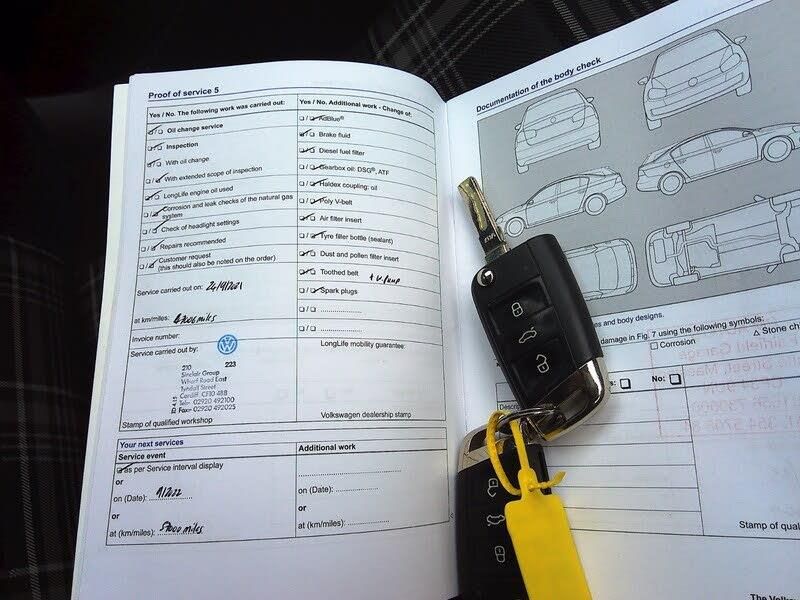 Proof of service 5
Yes / No. The following work was carried out:
Oil change service
Inspection
With oil change
With extended scope of inspection
LongLife engine oil used
Corrosion and leak checks of the natural gas
system
Check of headlight settings
Repairs recommended
Customer request
(this should also be noted on the order)
Service carried out on: 24/9/2021
at km/miles: miles
Invoice number:
Service carried out by:
210 223
Sinclair Group
Wharf Road East
Tyndall Street
Cardiff. CF10 4BB
Tel:- 02920 492100
Fax:- 02920 492025
Stamp of qualified workshop
Yes / No. Additional work - Change of:
AdBlue®
Brake fluid
Diesel fuel filter
Gearbox oil: DSG®, ATF
Haldex coupling: oil
Poly V-belt
Air filter insert
Tyre filler bottle (sealant)
Dust and pollen filter insert
Toothed belt + w.pump
Spark plugs
LongLife mobility guarantee:
Volkswagen dealership stamp
Your next services
Service event
as per Service interval display
or
on (Date): 9/2022
or
at (km/miles): 57000 miles
Additional work
on (Date):
or
at (km/miles):
Documentation of the body check
es and body designs.
damage in Fig. 7 using the following symbols:
Corrosion
△ Stone ch
No:
Descri
Stamp of qual
The Volks